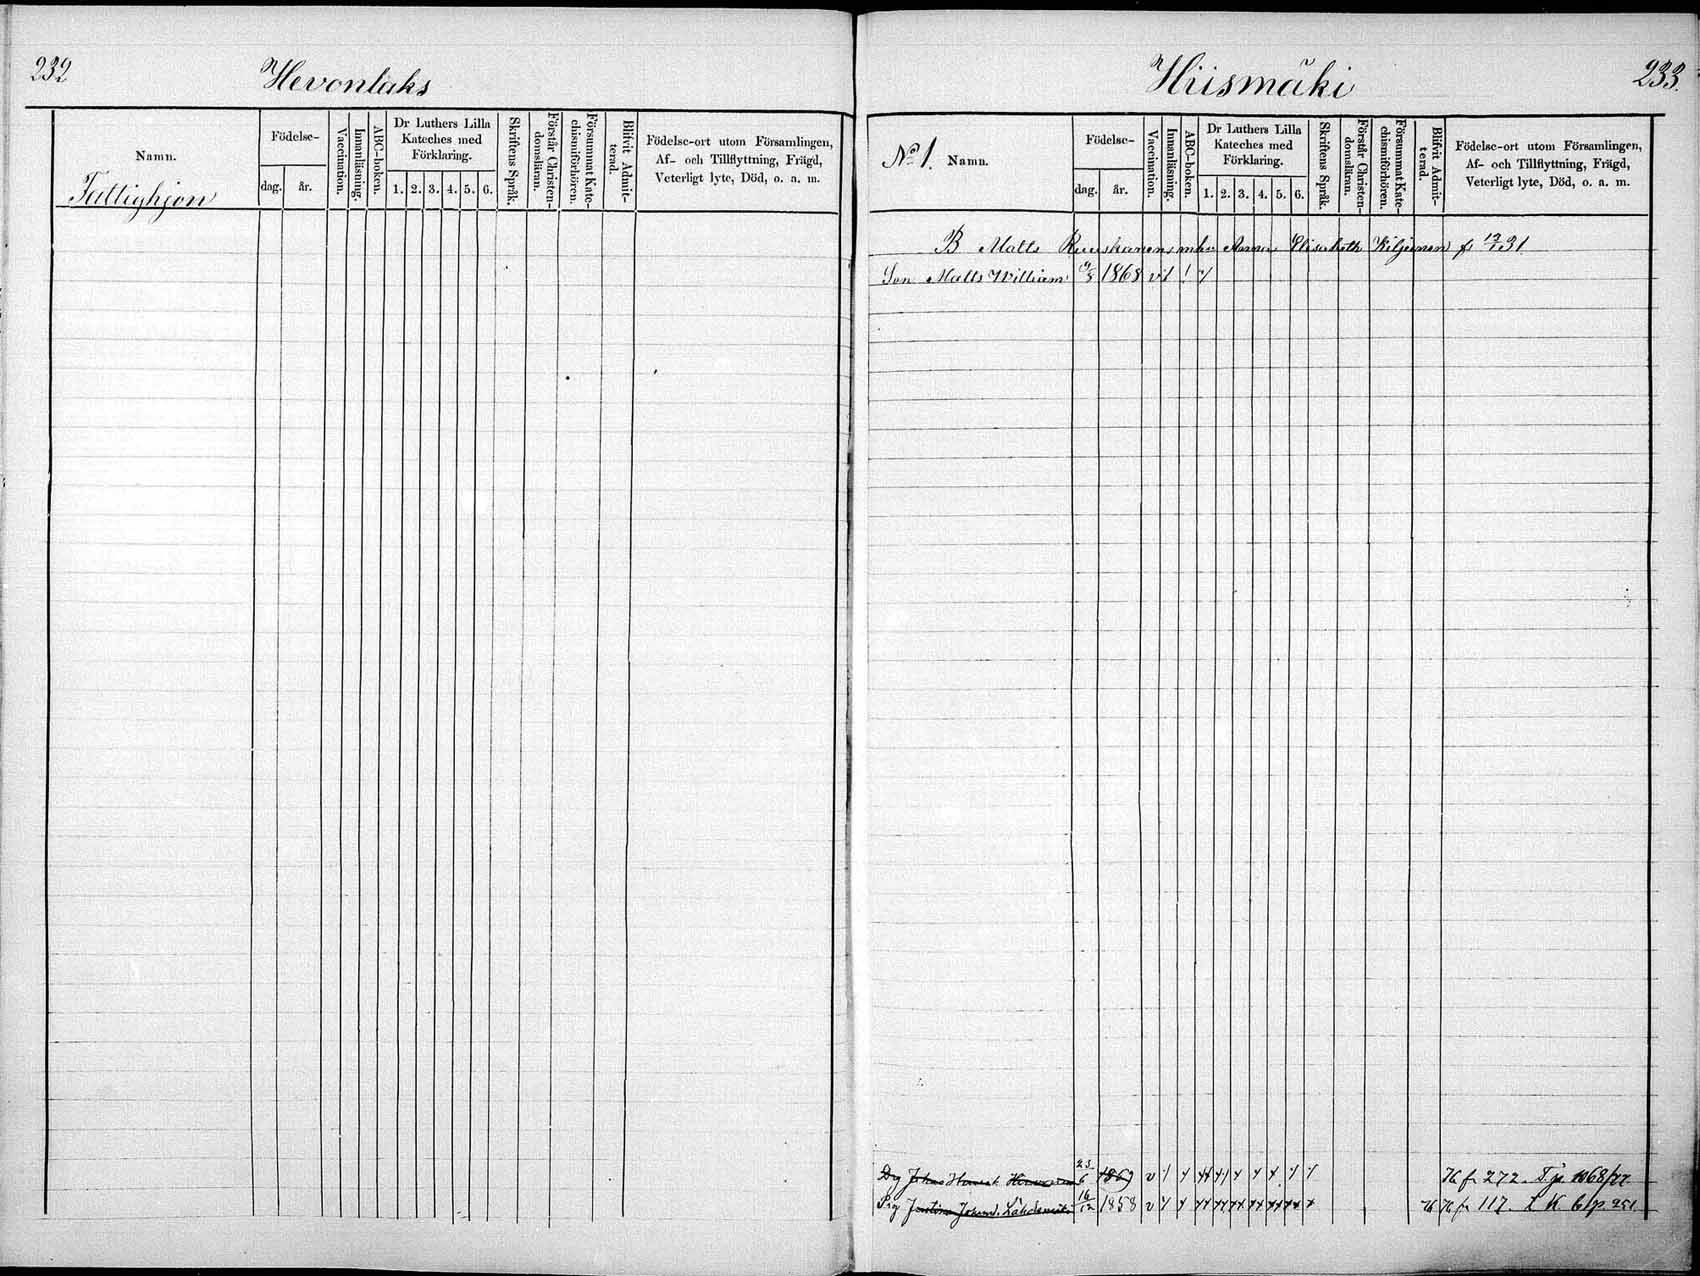 232
Hevonlaks
Namn.
Födelse-
dag.
år.
Vaccination.
Innanläsning.
ABC-boken.
Dr Luthers Lilla
Kateches med
Förklaring.
1. 2. 3. 4. 5. 6.
Skriftens Språk.
Förstår Christen-
domsläran.
Försummat Kate-
chismiförhören.
Blifvit Admit-
terad.
Födelse-ort utom Församlingen,
Af- och Tillflyttning, Frägd,
Veterligt lyte, Död, o. a. m.
Fattighjon
Hiismäki
233.
No 1. Namn.
Födelse-
dag.
år.
Vaccination.
Innanläsning.
ABC-boken.
Dr Luthers Lilla
Kateches med
Förklaring.
1. 2. 3. 4. 5. 6.
Skriftens Språk.
Förstår Christen-
domsläran.
Försummat Kate-
chismiförhören.
Blifvit Admit-
terad.
Födelse-ort utom Församlingen,
Af- och Tillflyttning, Frägd,
Veterligt lyte, Död, o. a. m.
B Matts Ruuskanens enka Anna Elisabeth Kiljunen f. 31
Son Matts William 1868 v
Drg Johan 23/6 v 76 fr 272.
Pig 16/12 1858 v 76 fr 117. L K